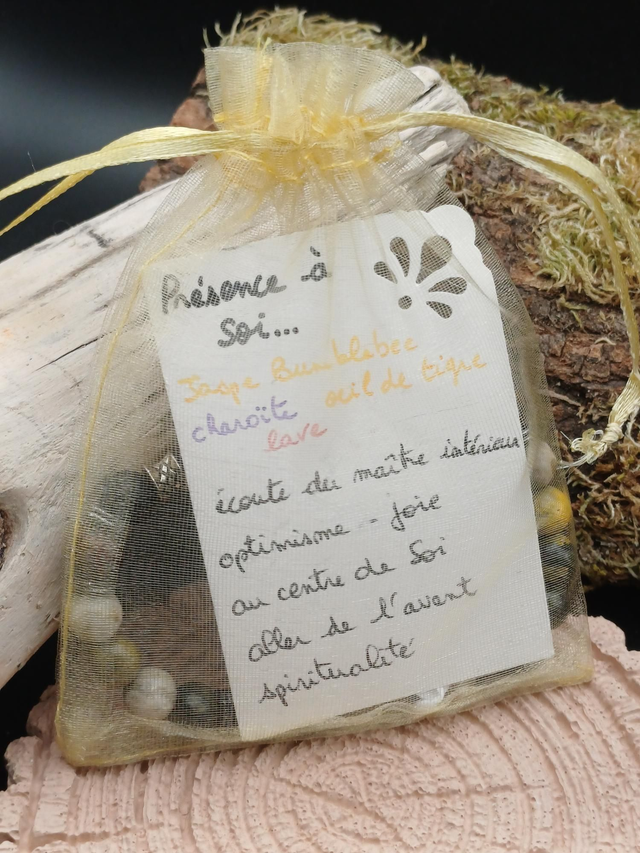 Présence à
Soi...
Jaspe Bumblebee
charoïte œil de tigre
lave
écoute du maître intérieur
optimisme - joie
au centre de Soi
aller de l'avant
spiritualité